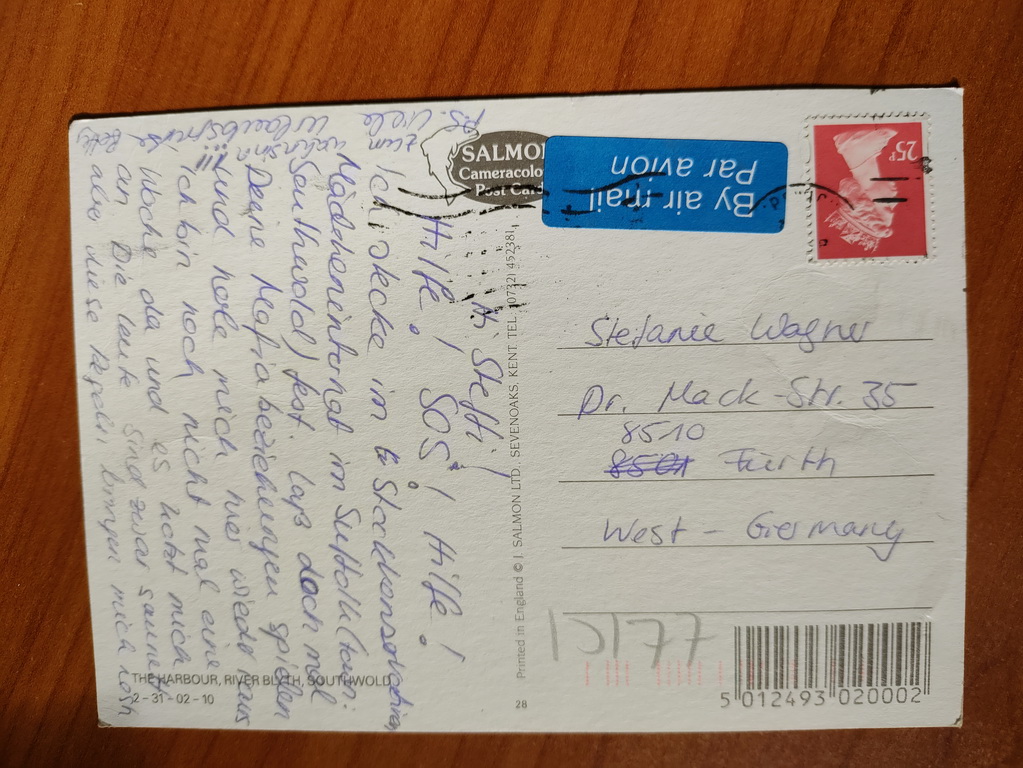 Hi Steffi!
Hilfe! SOS! Hilfe!
Ich stecke im Stockkonservativen
Mädcheninternat im Suffolk (bei:
Southwold) fest. laß doch mal
Deine Mafia beziehungen spielen
und hole mich hier wieder raus
!! Ich bin noch nicht mal eine
Woche da und es kotzt mich
an. Die Leute sind zwar
aber diese Regeln bringen mich
P.S. Viele
zum
SALMON
Cameracolour
Post Card
By air mail
Par avion
25P
Stefanie Wagner
Dr. Mack-Str. 35
8510
8501 Fürth
West - Germany
Printed in England © J. SALMON LTD. SEVENOAKS, KENT. TEL. (0732) 452381
28
THE HARBOUR, RIVER BLYTH, SOUTHWOLD
2-31-02-10
5 012493 020002